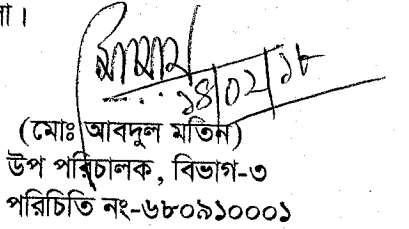 ১৪/০২/১৮
(মোঃ আবদুল মতিন)
উপ পরিচালক, বিভাগ-৩
পরিচিতি নং-৬৮০৯১০০০১